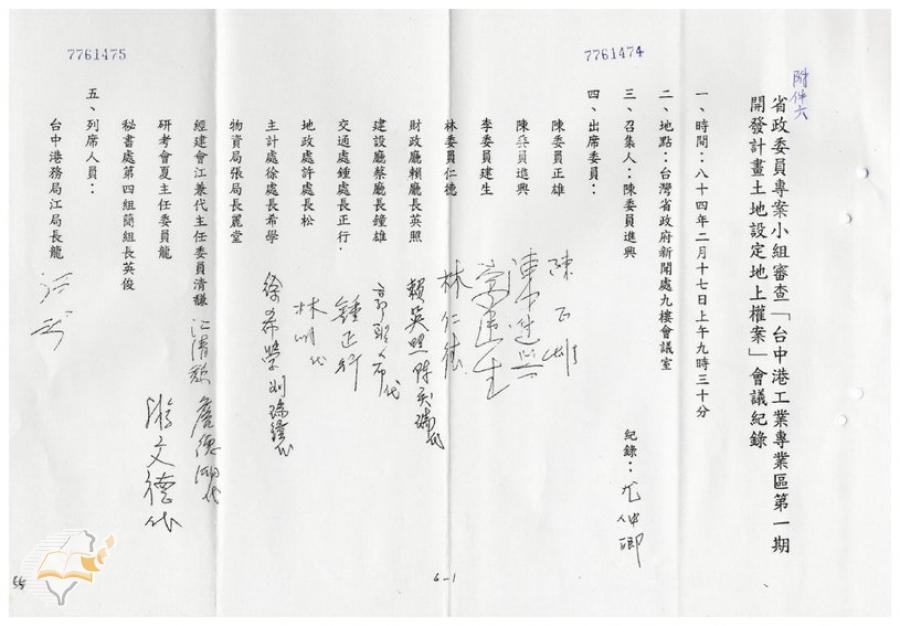 附件六
省政委員專案小組審查「台中港工業專業區第一期
開發計畫土地設定地上權案」會議紀錄
一、時間：八十四年二月十七日上午九時三十分
二、地點：台灣省政府新聞處九樓會議室
三、召集人：陳委員進興 紀錄：尤仲卿
四、出席委員：
陳委員正雄 陳正雄
陳委員進興 陳進興
李委員建生 李建生
林委員仁德 林仁德
財政廳賴廳長英照 賴英照 代
建設廳蔡廳長鐘雄 代
交通處鍾處長正行 鍾正行
地政處許處長松 林 代
主計處徐處長希學 徐希學 代
物資局張局長麗堂
經建會江兼代主任委員清馦 江清馦 詹德 代
研考會夏主任委員龍 游文德代
秘書處第四組簡組長英俊
五、列席人員：
台中港務局江局長龍 江
7761474
7761475
6-1